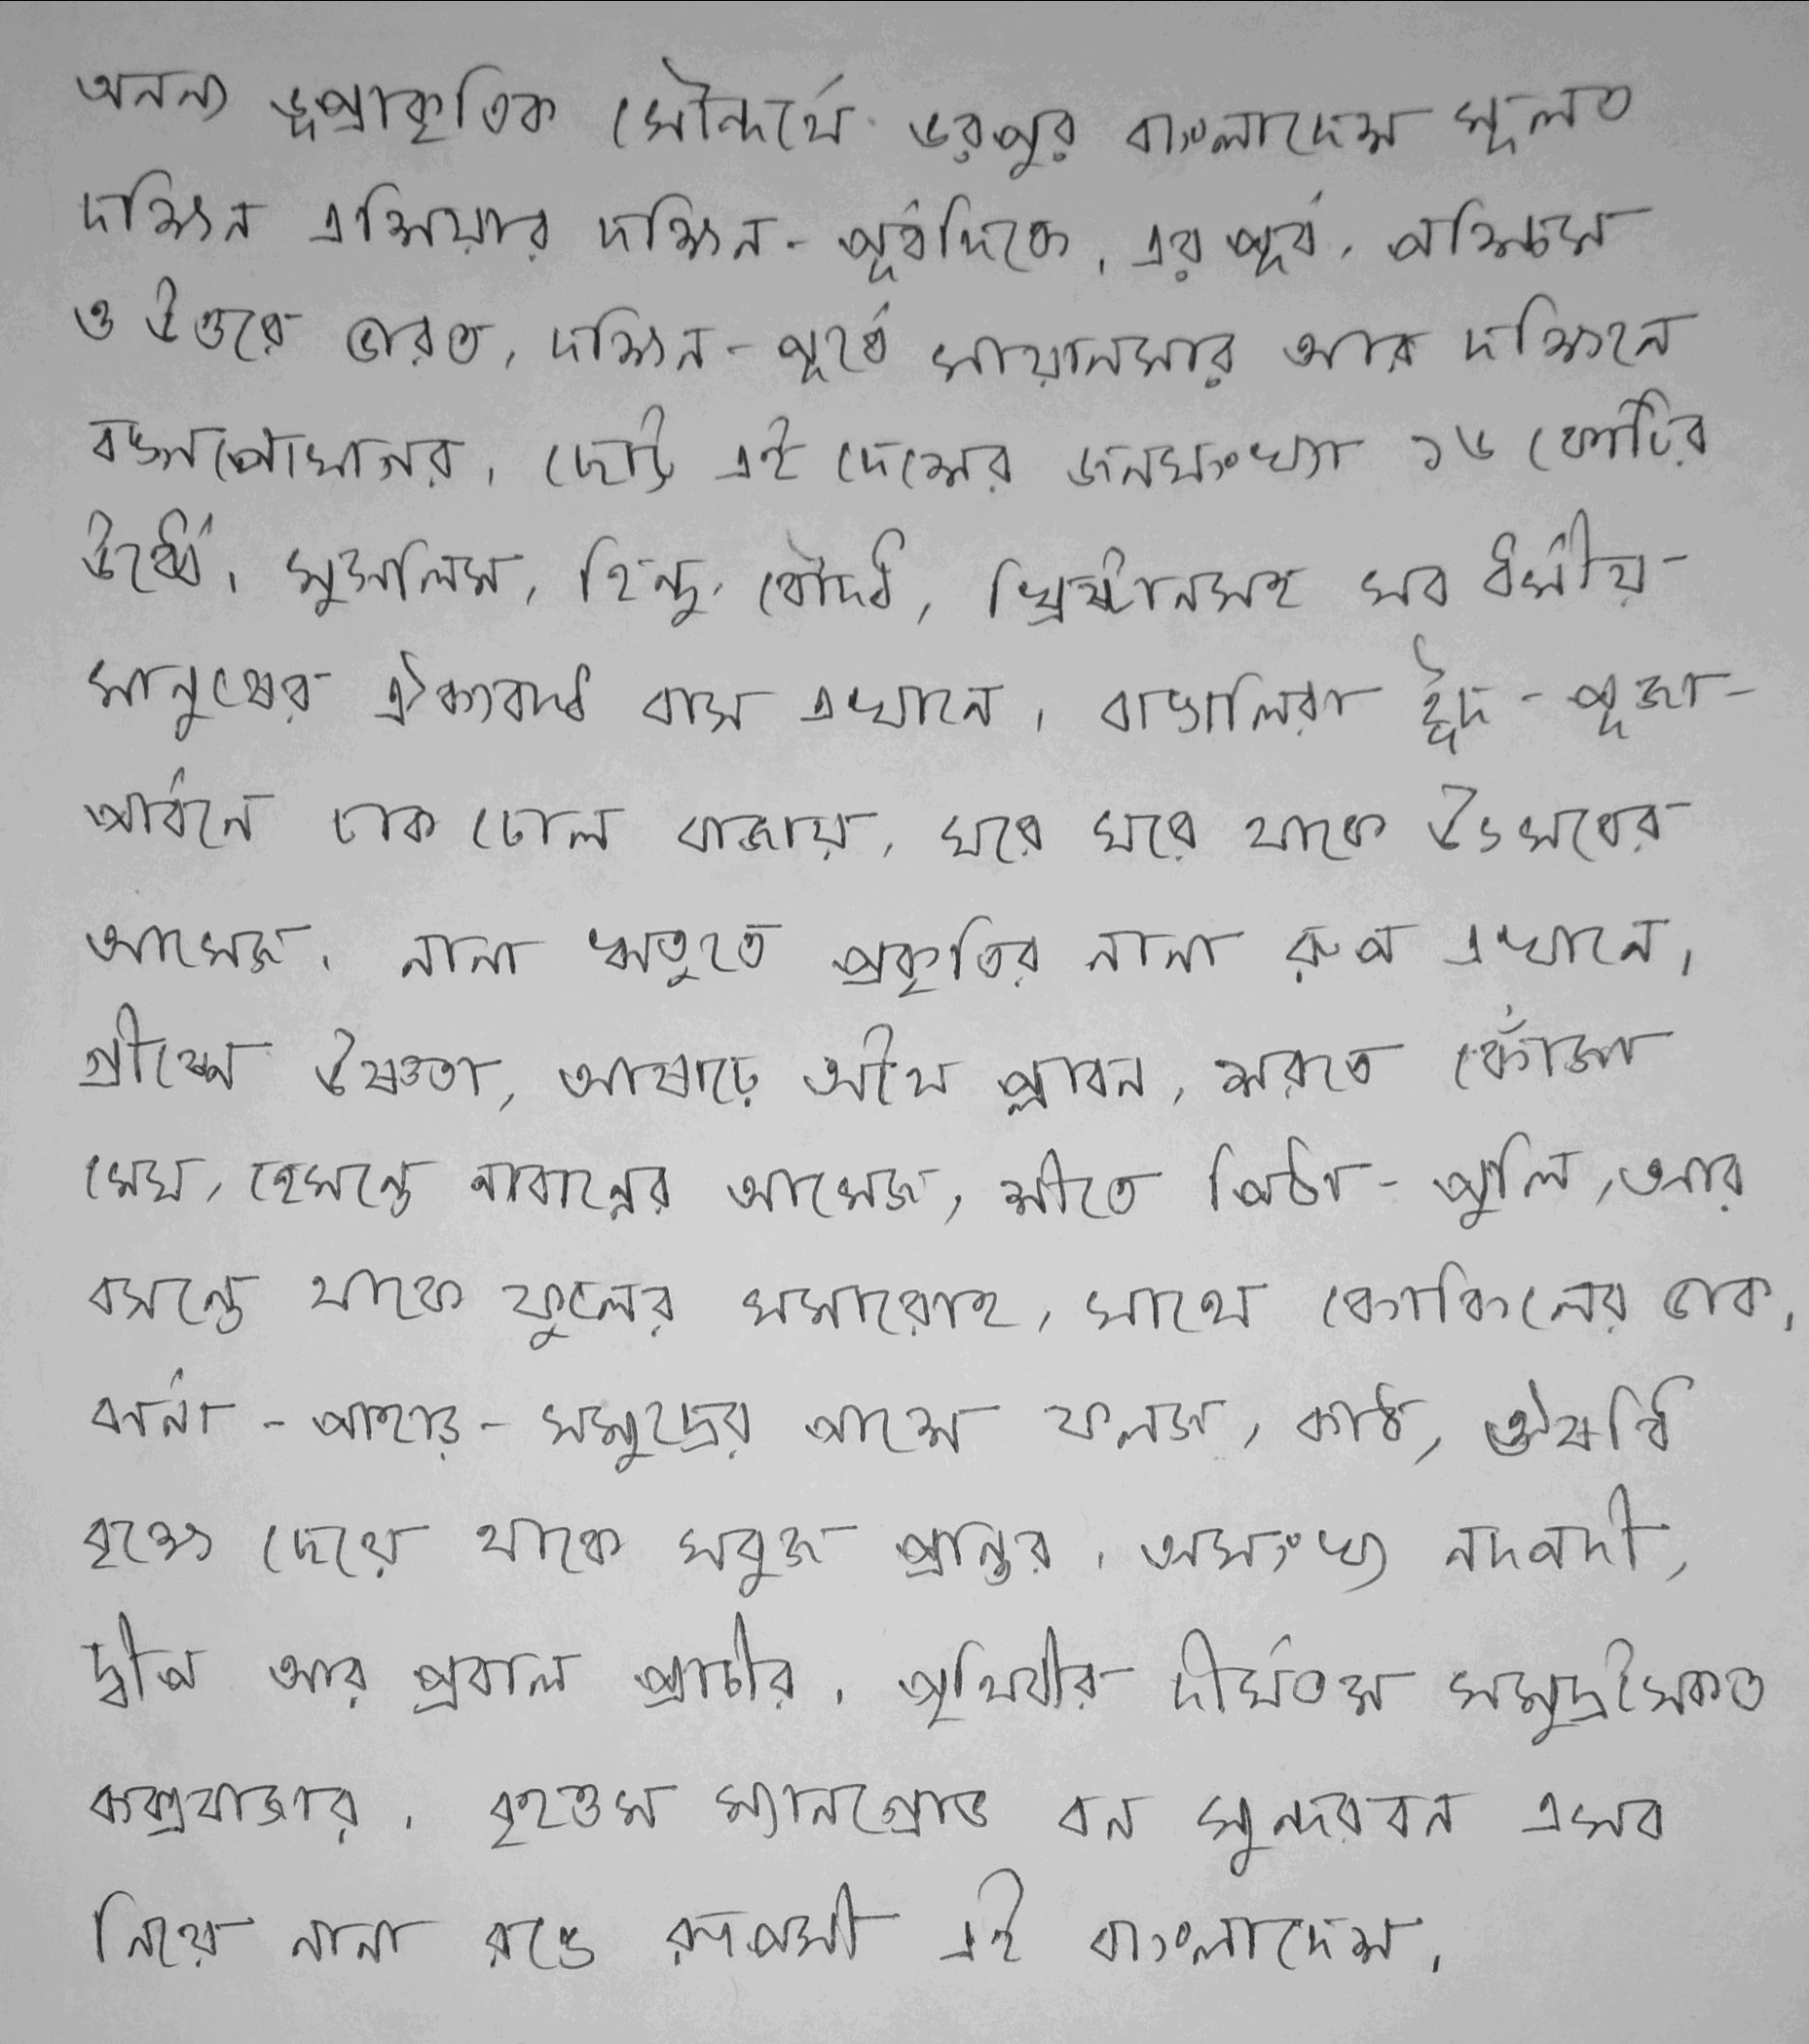 অনন্য ভূপ্রাকৃতিক সৌন্দর্যে ভরপুর বাংলাদেশ মূলত
দক্ষিন এশিয়ার দক্ষিন-পূর্বদিকে। এর পূর্ব, পশ্চিম
ও উত্তরে ভারত, দক্ষিন-পূর্বে মায়ানমার আর দক্ষিনে
বঙ্গোপোসাগর। ছোট্ট এই দেশের জনসংখ্যা ১৬ কোটির
উর্ধ্বে। মুসলিম, হিন্দু, বৌদ্ধ, খ্রিষ্টানসহ সব ধর্মীয়
মানুষের ঐক্যবদ্ধ বাস এখানে। বাঙালিরা ঈদ-পূজা-
পার্বনে ঢাক ঢোল বাজায়, ঘরে ঘরে থাকে উৎসবের
আমেজ। নানা ঋতুতে প্রকৃতির নানা রুপ এখানে।
গ্রীষ্মে উষ্ণতা, আষাঢ়ে অথৈ প্লাবন, শরতে পেঁজা
মেঘ, হেমন্তে নাবান্নের আমেজ, শীতে পিঠা-পুলি, আর
বসন্তে থাকে ফুলের সমারোহ, সাথে কোকিলের ডাক।
ঝর্না-পাহাড়-সমুদ্রের পাশে ফলজ, কাঠ, ঔষধি
বৃক্ষে ছেয়ে থাকে সবুজ প্রান্তর। অসংখ্য নদনদী,
দ্বীপ আর প্রবাল প্রাচীর। পৃথিবীর দীর্ঘতম সমুদ্রসৈকত
কক্সবাজার। বৃহত্তম ম্যানগ্রোভ বন সুন্দরবন এসব
নিয়ে নানা রঙে রূপসী এই বাংলাদেশ।